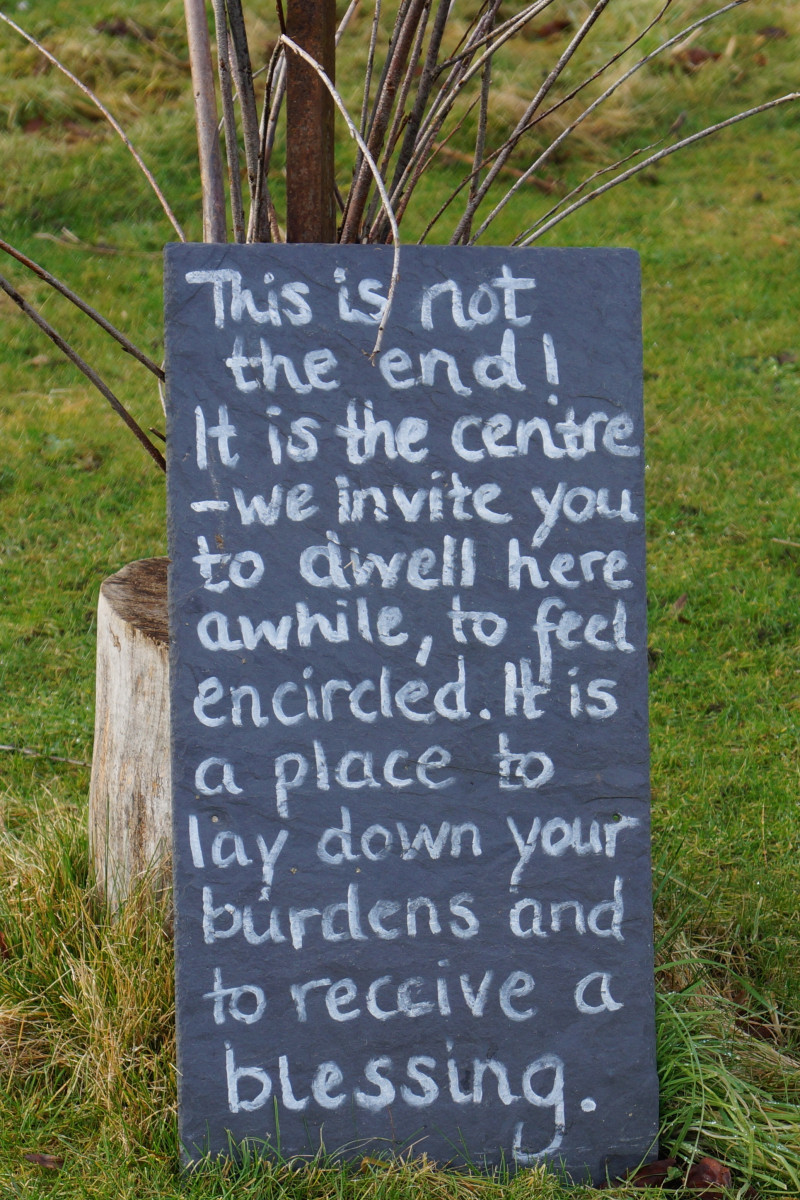 This is not
the end!
It is the centre
-we invite you
to dwell here
awhile, to feel
encircled. It is
a place to
lay down your
burdens and
to receive a
blessing.